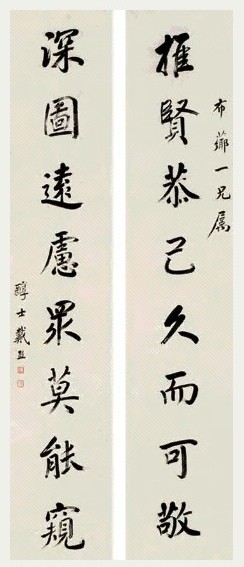 布薌一兄属
推賢恭己久而可敬
深圖遠慮眾莫能窺
醇士戴熙